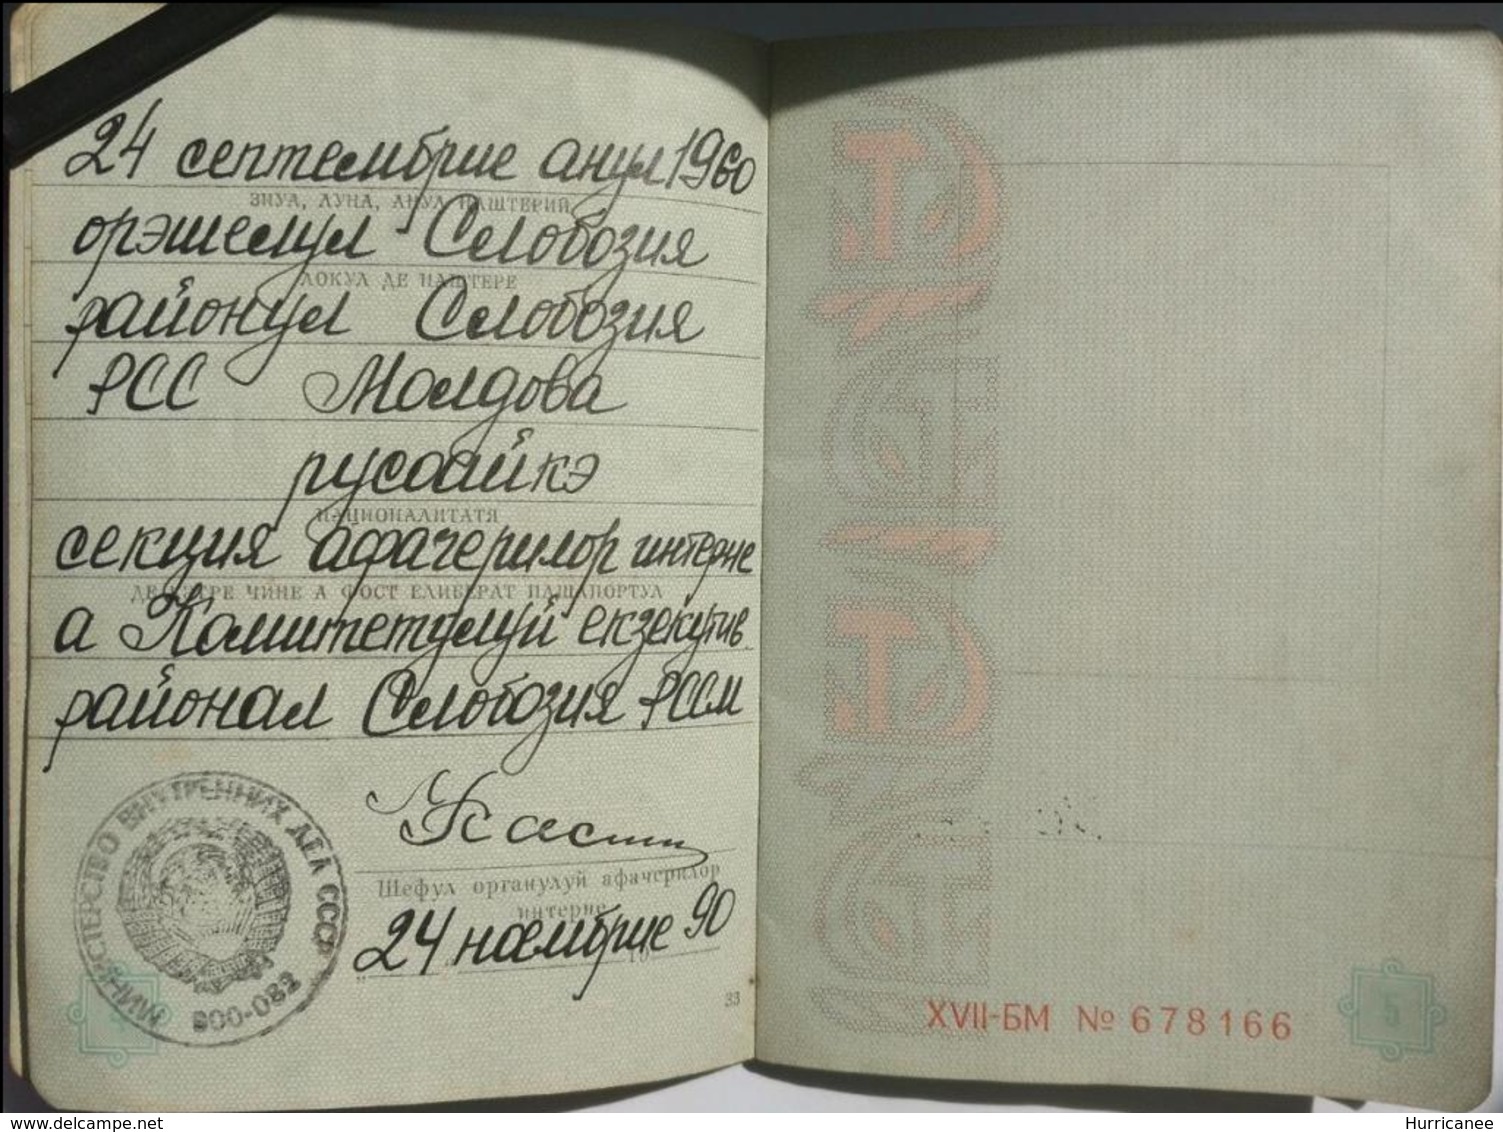 24 септембрие анул 1960
ЗИУА, ЛУНА, АНУЛ НАШТЕРИЙ
орэшелул Слобозия
ЛОКУЛ ДЕ НАШТЕРЕ
районул Слобозия
РСС Молдова
русоайкэ
НАЦИОНАЛИТАТЯ
секция афачерилор интерне
ДЕ КЭТРЕ ЧИНЕ А ФОСТ ЕЛИБЕРАТ ПАШАПОРТУЛ
а Комитетулуй екзекутив
районал Слобозия РССМ
Шефул органулуй афачерилор
интерне
24 ноембрие 90
19
33
МИНИСТЕРСТВО ВНУТРЕННИХ ДЕЛ СССР
900-082
XVII-БМ № 678166
5
Hurricanee
delcampe.net